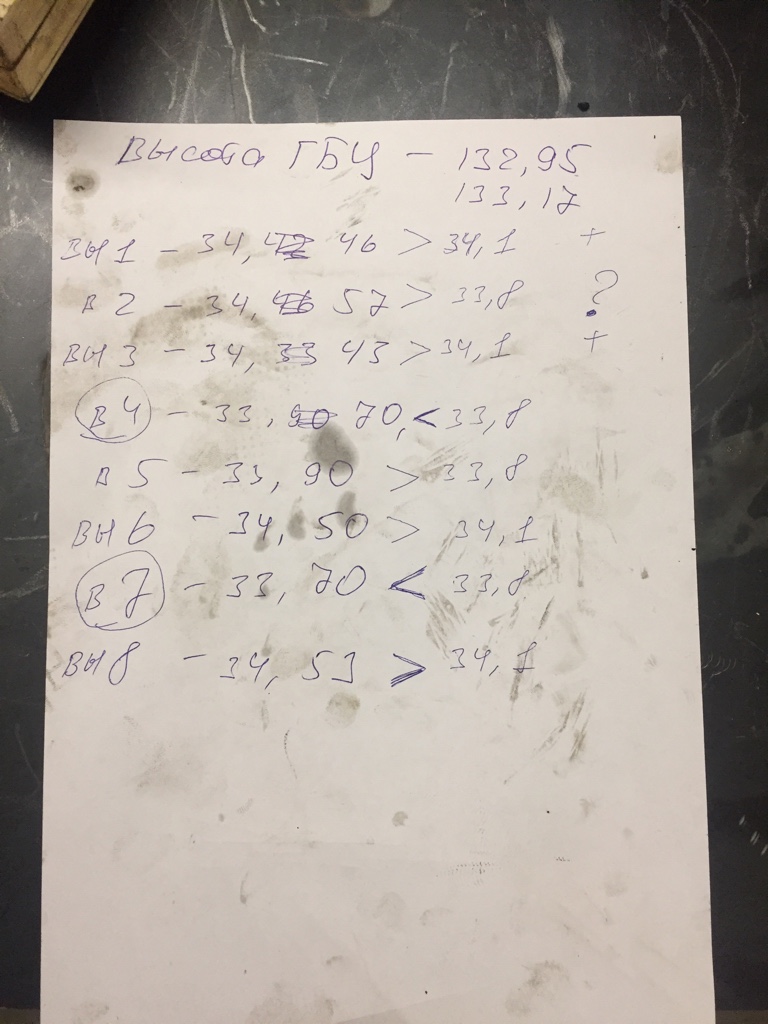 Высота ГБЦ – 132,95
133,17
ВЫ 1 – 34, 46 > 34,1 +
В 2 – 34, 57 > 33,8 ?
ВЫ 3 – 34, 43 > 34,1 +
В 4 – 33, 70, < 33,8
В 5 – 33, 90 > 33,8
ВЫ 6 – 34, 50 > 34,1
В 7 – 33, 70 < 33,8
ВЫ 8 – 34, 53 > 34,1